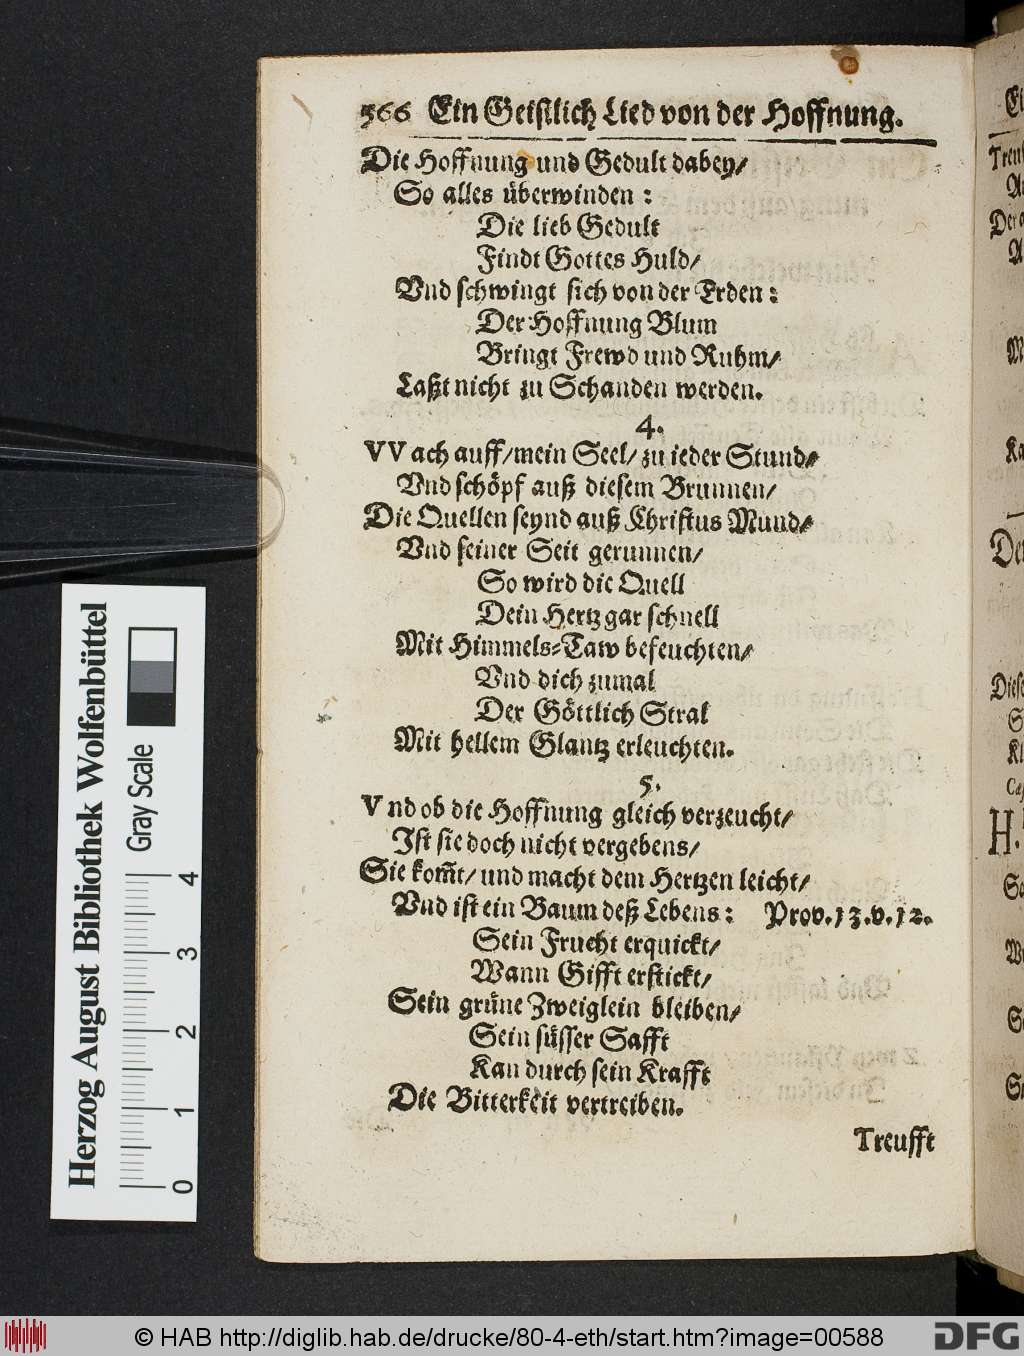 566 Ein Geistlich Lied von der Hoffnung.
Die Hoffnung und Gedult dabey/
So alles überwinden:
Die lieb Gedult
Findt Gottes Huld/
Vnd schwingt sich von der Erden:
Der Hoffnung Blum
Bringt Frewd und Ruhm/
Laßt nicht zu Schanden werden.
4.
VVach auff/mein Seel/ zu ieder Stund/
Vnd schöpf auß diesem Brunnen/
Die Quellen seynd auß Christus Mund/
Vnd seiner Seit gerunnen/
So wird die Quell
Dein Hertz gar schnell
Mit Himmels-Taw befeuchten/
Vnd dich zumal
Der Göttlich Stral
Mit hellem Glantz erleuchten.
5.
Vnd ob die Hoffnung gleich verzeucht/
Ist sie doch nicht vergebens/
Sie kom̃t/ und macht dem Hertzen leicht/
Vnd ist ein Baum deß Lebens: Prov.13.v.12.
Sein Frucht erquickt/
Wann Gifft erstickt/
Sein grüne Zweiglein bleiben/
Sein süsser Safft
Kan durch sein Krafft
Die Bitterkeit vertreiben.
Treufft
Herzog August Bibliothek Wolfenbüttel
Gray Scale
0 1 2 3 4
© HAB http://diglib.hab.de/drucke/80-4-eth/start.htm?image=00588
DFG